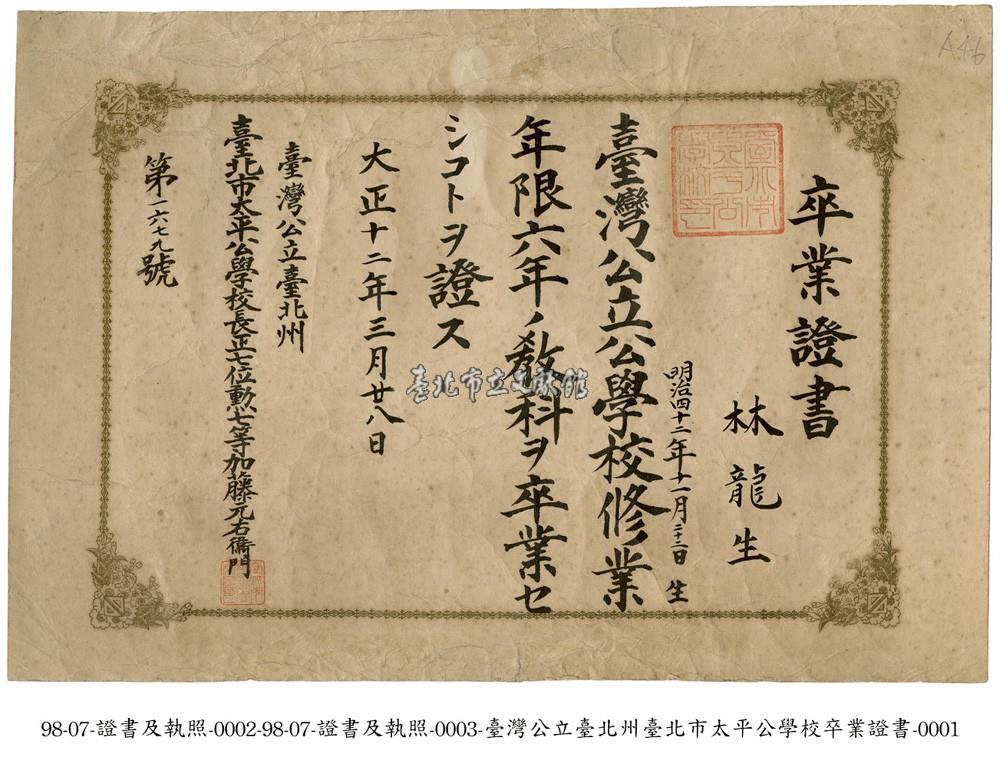 卒業證書
林龍生
明治四十二年十一月二十三日生
臺灣公立公學校修業
年限六年ノ教科ヲ卒業セ
シコトヲ證ス
大正十二年三月廿八日
臺灣公立臺北州
臺北市太平公學校長正七位勳七等加藤元右衞門
第一六七九號
A46
臺北市立文獻館
98-07-證書及執照-0002-98-07-證書及執照-0003-臺灣公立臺北州臺北市太平公學校卒業證書-0001